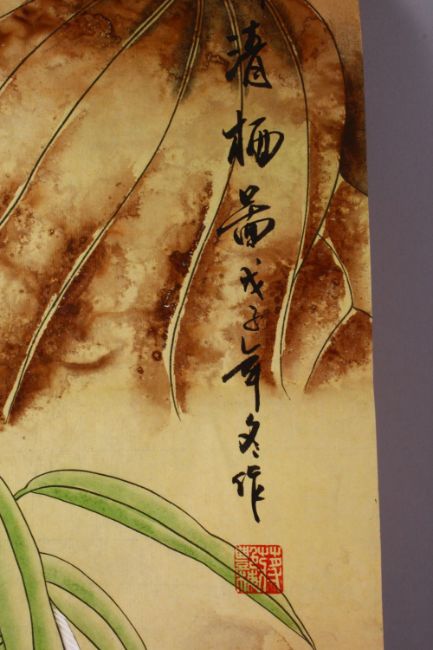 清栖图戊子年冬作